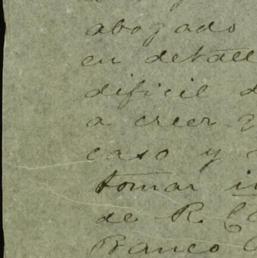 abogado
en detall
dificil d
a creer q
caso y
tomar in
de R. Co
Franco